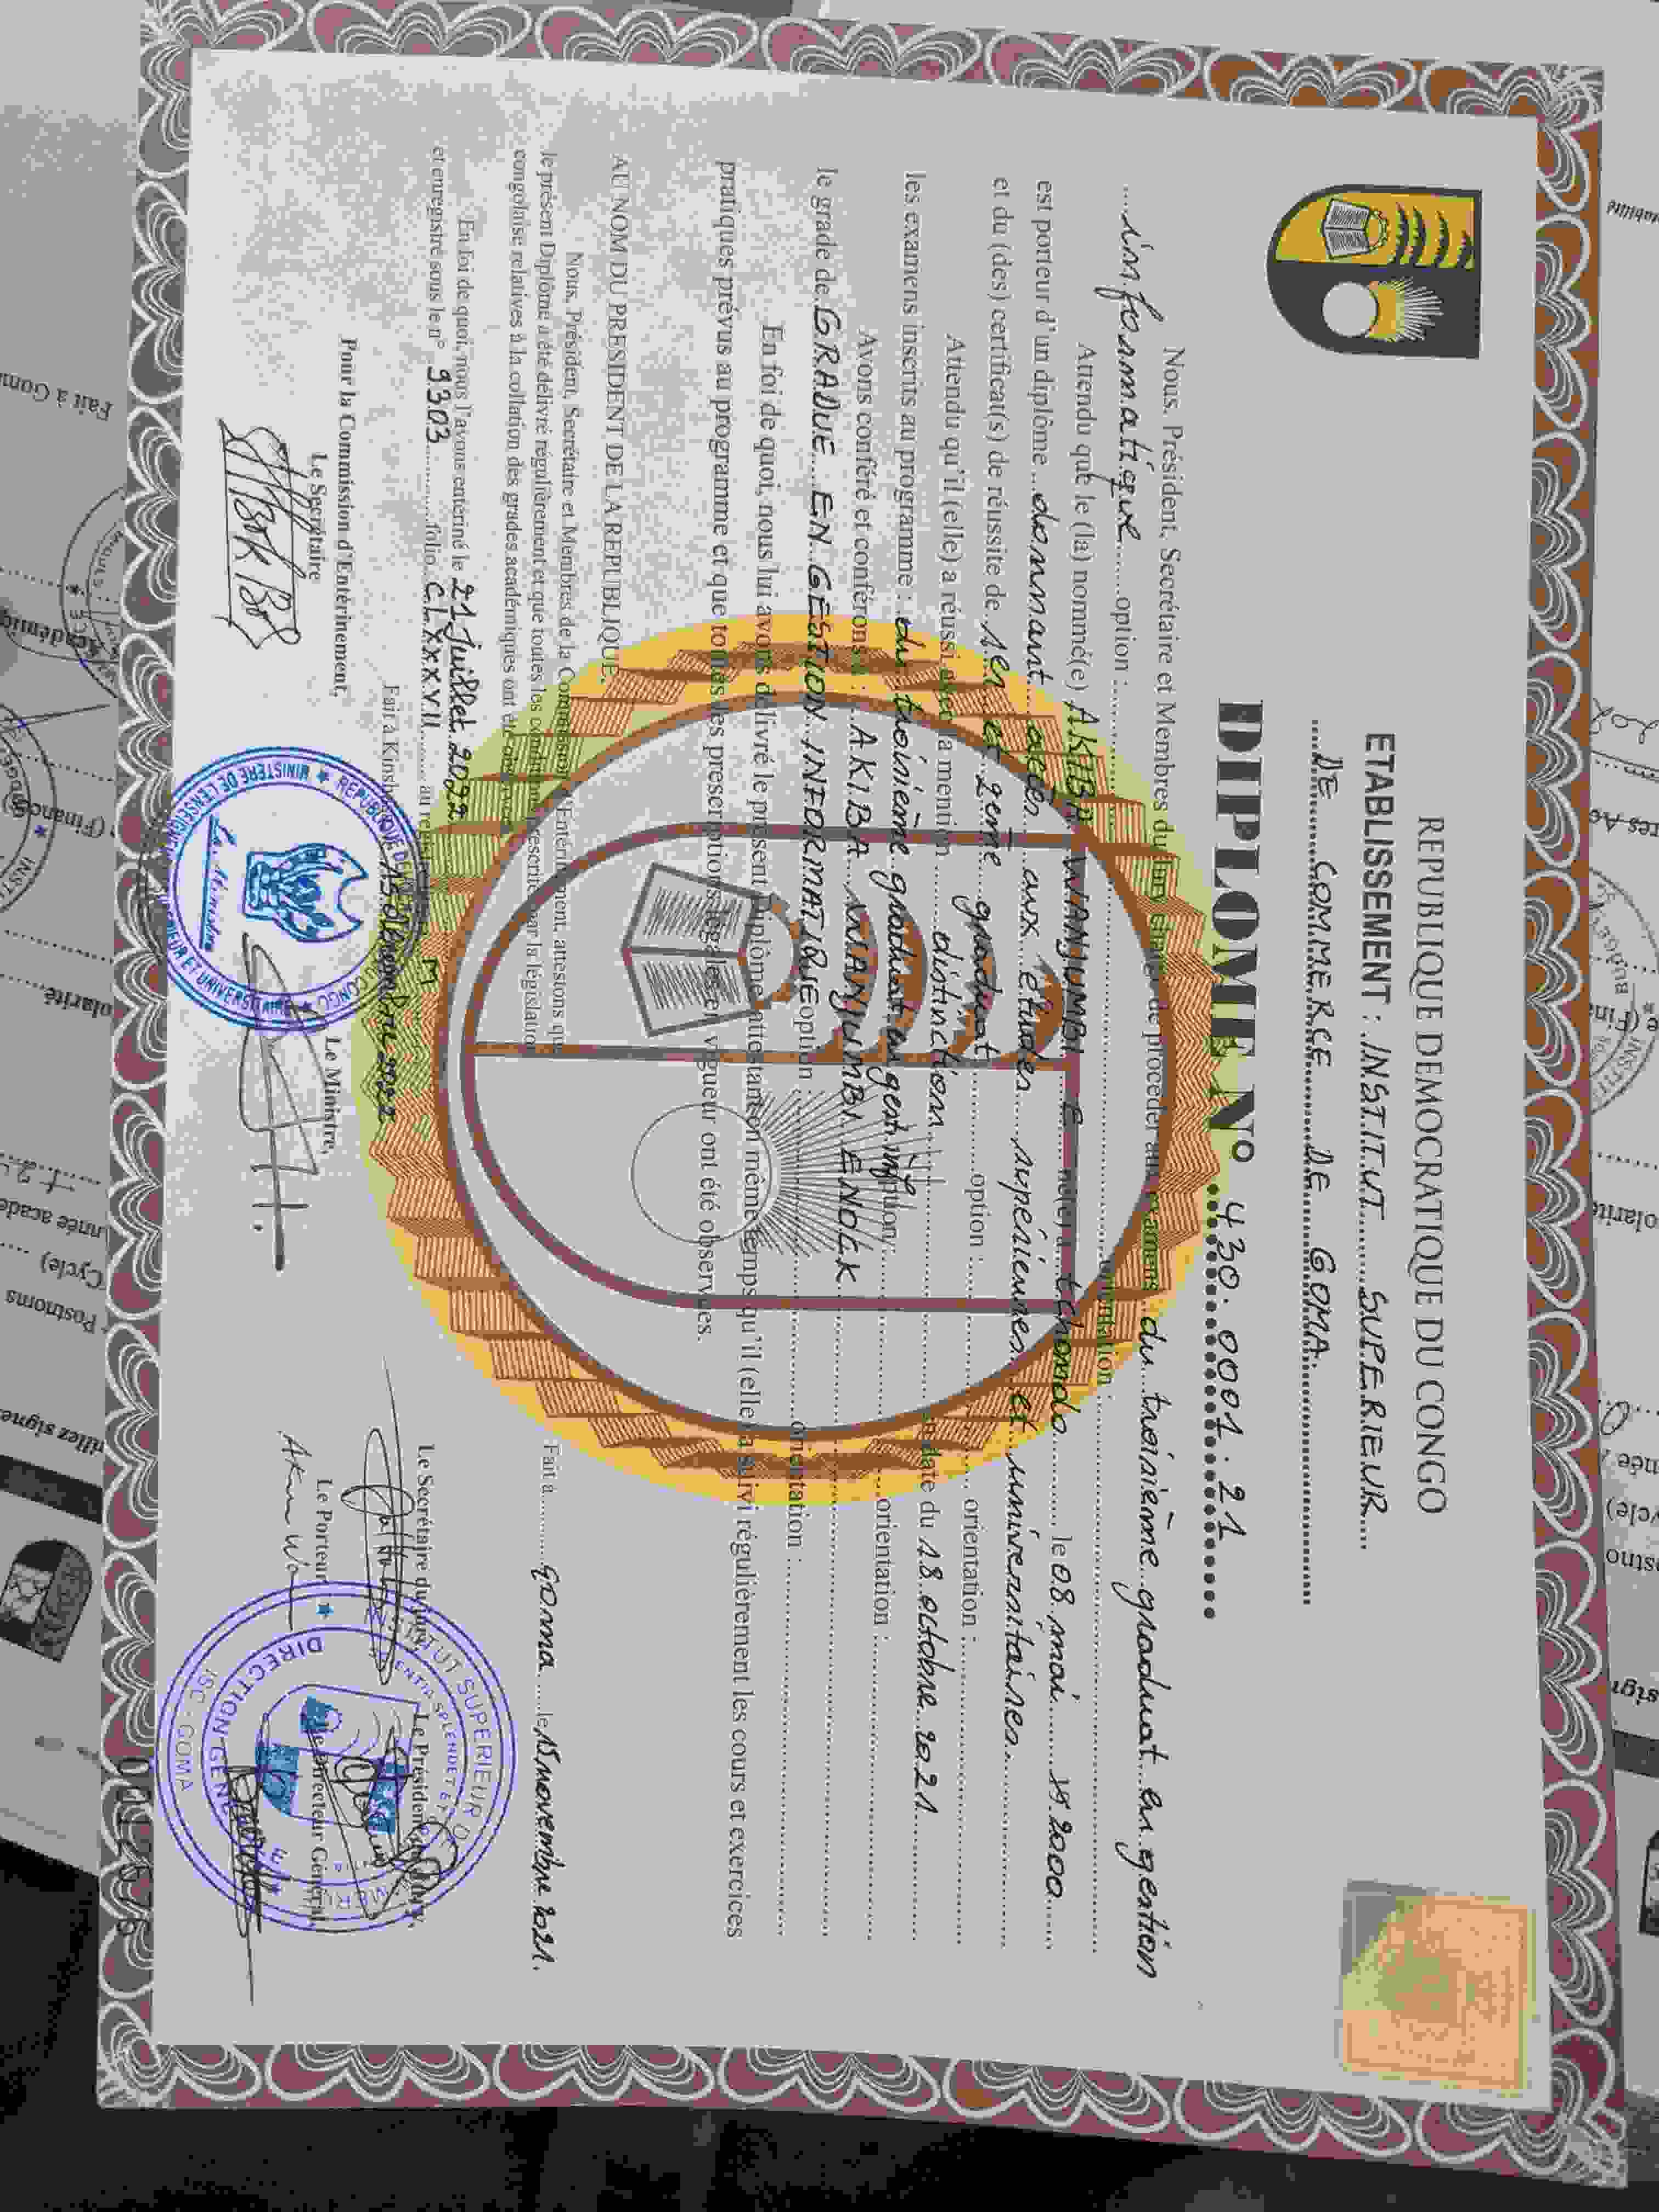 REPUBLIQUE DEMOCRATIQUE DU CONGO
ETABLISSEMENT : INSTITUT SUPERIEUR
DE COMMERCE DE GOMA
DIPLOME N° 430.0001.21
Nous, Président, Secrétaire et Membres du Jury chargé de procéder aux examens du troisième graduat en gestion
informatique option : orientation :
Attendu que le (la) nommé(e) AKIBA WANJUMBI E. né(e) à tchomolo le 08 mai 19 2000
est porteur d'un diplôme donnant accès aux études supérieures et universitaires
et du (des) certificat(s) de réussite de 1er et 2eme graduat option : orientation :
Attendu qu'il (elle) a réussi avec la mention distinction en date du 18 octobre 2021
les examens inscrits au programme : du troisième graduat en gest. info option : orientation :
Avons conféré et conférons à : AKIBA WANJUMBI ENOCK
le grade de GRADUE EN GESTION INFORMATIQUE option : orientation :
En foi de quoi, nous lui avons délivré le présent Diplôme attestant en même temps qu'il (elle) a suivi régulièrement les cours et exercices
pratiques prévus au programme et que toutes les prescriptions légales en vigueur ont été observées.
Fait à goma le 15 novembre 2021.
AU NOM DU PRESIDENT DE LA REPUBLIQUE,
Nous, Président, Secrétaire et Membres de la Commission d'Entérinement, attestons que
le présent Diplôme a été délivré régulièrement et que toutes les conditions prescrites par la législation
congolaise relatives à la collation des grades académiques ont été observées
En foi de quoi, nous l'avons entériné le 21 Juillet 2022
et enregistré sous le n° 9303 folio CLXXXVII au registre M
Fait à Kinshasa 2022
Pour la Commission d'Entérinement,
Le Secrétaire
Le Ministre,
Le Secrétaire du Jury,
Le Président du Jury,
Le Porteur
Le Directeur Général,
REPUBLIQUE DEMOCRATIQUE DU CONGO
MINISTERE DE L'ENSEIGNEMENT SUPERIEUR ET UNIVERSITAIRE
Le Ministre
INSTITUT SUPERIEUR DE COMMERCE
DIRECTION GENERALE
ISC - GOMA